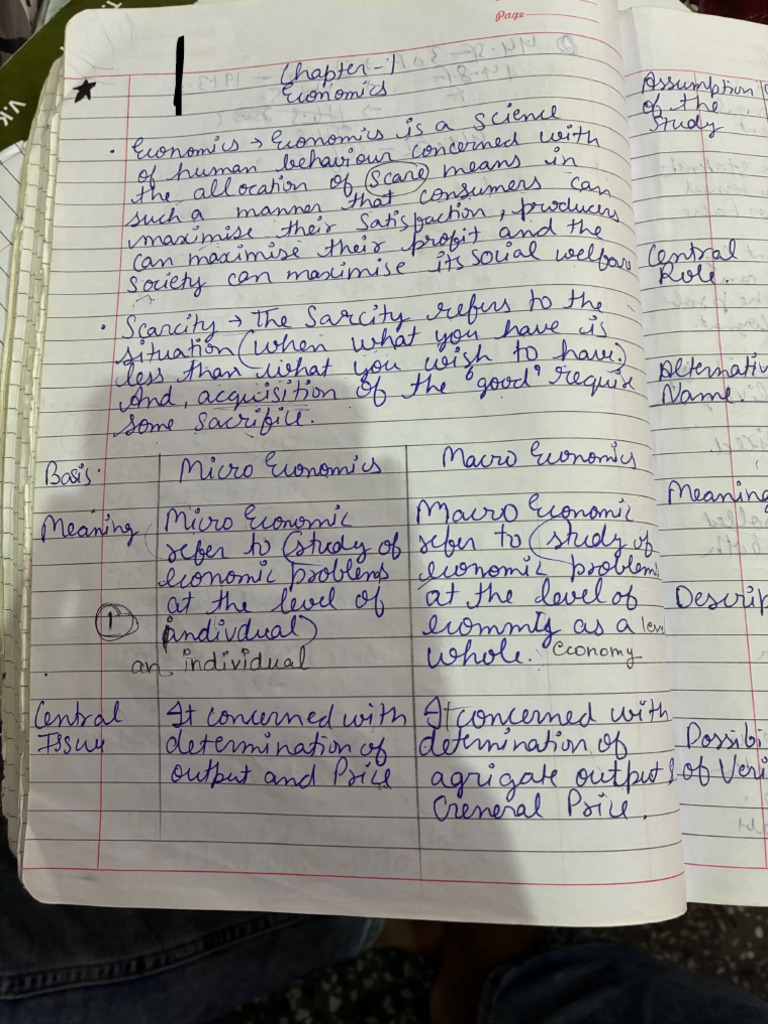 Page
Chapter-1
Economics
• Economics → Economics is a science
of human behaviour concerned with
the allocation of scare means in
such a manner that consumers can
maximise their satisfaction, producers
can maximise their profit and the
society can maximise its social welfare
• Scarcity → The Sarcity refers to the
situation (when what you have is
less than what you wish to have.)
And, acquisition of the "good" require
some sacrifice.
Basis. Micro Economics Macro Economics
Meaning Micro Economic Macro Economic
refer to (study of refer to (study of
economic problems economic problems
at the level of at the level of
indivdual) economy as a
whole. economy
1
an individual
Central It concerned with It concerned with
Issue determination of determination of
output and Price agrigate output &
General Price.
Assumption
of the
Study
Central
Role.
Name.
Meaning
Descrip
Possibi
of Veri
V.K